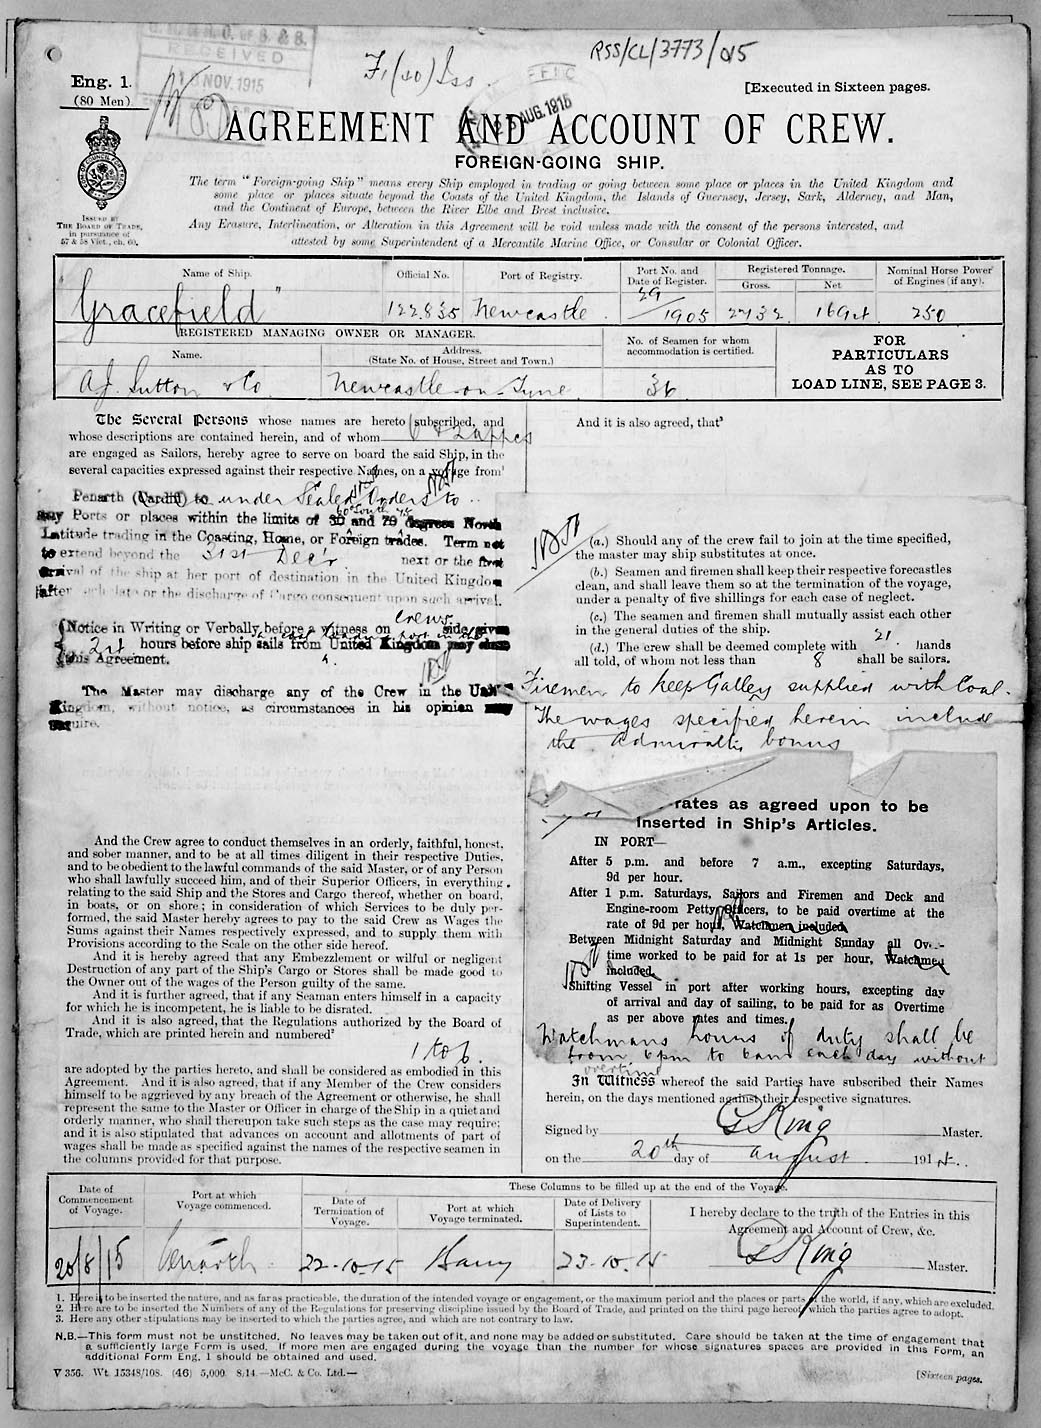 RSS/CL/3773/015
RECEIVED
NOV. 1915
AUG. 1915
Eng. 1.
(80 Men)
[Executed in Sixteen pages.
AGREEMENT AND ACCOUNT OF CREW.
FOREIGN-GOING SHIP.
ISSUED BY
THE BOARD OF TRADE,
in pursuance of
57 & 58 Vict., ch. 60.
The term "Foreign-going Ship" means every Ship employed in trading or going between some place or places in the United Kingdom and
some place or places situate beyond the Coasts of the United Kingdom, the Islands of Guernsey, Jersey, Sark, Alderney, and Man,
and the Continent of Europe, between the River Elbe and Brest inclusive.
Any Erasure, Interlineation, or Alteration in this Agreement will be void unless made with the consent of the persons interested, and
attested by some Superintendent of a Mercantile Marine Office, or Consular or Colonial Officer.
Name of Ship. Official No. Port of Registry. Port No. and Date of Register. Registered Tonnage. Gross. Net Nominal Horse Power of Engines (if any).
"Gracefield" 122.835 Newcastle 29/1905 2732 250
REGISTERED MANAGING OWNER OR MANAGER.
Name. Address. (State No. of House, Street and Town.)
No. of Seamen for whom accommodation is certified.
FOR PARTICULARS AS TO LOAD LINE, SEE PAGE 3.
A.J. Sutton & Co Newcastle-on-Tyne 36
The Several Persons whose names are hereto subscribed, and
whose descriptions are contained herein, and of whom
are engaged as Sailors, hereby agree to serve on board the said Ship, in the
several capacities expressed against their respective Names, on a voyage from¹
Penarth (Cardiff) to under Sealed Orders to
any Ports or places within the limits of 30 and 79 degrees North
60 South 75
Latitude trading in the Coasting, Home, or Foreign trades. Term not
to extend beyond the 31st Decr. next or the first
arrival of the ship at her port of destination in the United Kingdom
after such date or the discharge of Cargo consequent upon such arrival.
crews
Notice in Writing or Verbally before a witness on side given
24 hours before ship sails from United Kingdom may
this Agreement.
The Master may discharge any of the Crew in the
Kingdom, without notice, as circumstances in his opinion may
require.
And the Crew agree to conduct themselves in an orderly, faithful, honest,
and sober manner, and to be at all times diligent in their respective Duties,
and to be obedient to the lawful commands of the said Master, or of any Person
who shall lawfully succeed him, and of their Superior Officers, in everything
relating to the said Ship and the Stores and Cargo thereof, whether on board,
in boats, or on shore; in consideration of which Services to be duly per-
formed, the said Master hereby agrees to pay to the said Crew as Wages the
Sums against their Names respectively expressed, and to supply them with
Provisions according to the Scale on the other side hereof.
And it is hereby agreed that any Embezzlement or wilful or negligent
Destruction of any part of the Ship's Cargo or Stores shall be made good to
the Owner out of the wages of the Person guilty of the same.
And it is further agreed, that if any Seaman enters himself in a capacity
for which he is incompetent, he is liable to be disrated.
And it is also agreed, that the Regulations authorized by the Board of
Trade, which are printed herein and numbered²
1 to 6.
are adopted by the parties hereto, and shall be considered as embodied in this
Agreement. And it is also agreed, that if any Member of the Crew considers
himself to be aggrieved by any breach of the Agreement or otherwise, he shall
represent the same to the Master or Officer in charge of the Ship in a quiet and
orderly manner, who shall thereupon take such steps as the case may require;
and it is also stipulated that advances on account and allotments of part of
wages shall be made as specified against the names of the respective seamen in
the columns provided for that purpose.
And it is also agreed, that³
(a.) Should any of the crew fail to join at the time specified,
the master may ship substitutes at once.
(b.) Seamen and firemen shall keep their respective forecastles
clean, and shall leave them so at the termination of the voyage,
under a penalty of five shillings for each case of neglect.
(c.) The seamen and firemen shall mutually assist each other
in the general duties of the ship.
(d.) The crew shall be deemed complete with 21 hands
all told, of whom not less than 8 shall be sailors.
Firemen to keep Galley supplied with Coal.
The wages specified herein include
the Admiralty bonus
rates as agreed upon to be
inserted in Ship's Articles.
IN PORT—
After 5 p.m. and before 7 a.m., excepting Saturdays,
9d per hour.
After 1 p.m. Saturdays, Sailors and Firemen and Deck and
Engine-room Petty Officers, to be paid overtime at the
rate of 9d per hour, Watchmen included
Between Midnight Saturday and Midnight Sunday all Over-
time worked to be paid for at 1s per hour, Watchmen
included.
Shifting Vessel in port after working hours, excepting day
of arrival and day of sailing, to be paid for as Overtime
as per above rates and times.
Watchmans hours of duty shall be
from 6pm to 6am each day without
overtime
In Witness whereof the said Parties have subscribed their Names
herein, on the days mentioned against their respective signatures.
Signed by G King Master.
on the 20th day of August 1915.
These Columns to be filled up at the end of the Voyage.
Date of Commencement of Voyage. Port at which Voyage commenced. Date of Termination of Voyage. Port at which Voyage terminated. Date of Delivery of Lists to Superintendent.
I hereby declare to the truth of the Entries in this
Agreement and Account of Crew, &c.
20/8/15 Penarth 22-10-15 Barry 23-10-15 G King Master.
1. Here is to be inserted the nature, and as far as practicable, the duration of the intended voyage or engagement, or the maximum period and the places or parts of the world, if any, which are excluded.
2. Here are to be inserted the Numbers of any of the Regulations for preserving discipline issued by the Board of Trade, and printed on the third page hereof, which the parties agree to adopt.
3. Here any other stipulations may be inserted to which the parties agree, and which are not contrary to law.
N.B.—This form must not be unstitched. No leaves may be taken out of it, and none may be added or substituted. Care should be taken at the time of engagement that
a sufficiently large Form is used. If more men are engaged during the voyage than the number for whose signatures spaces are provided in this Form, an
additional Form Eng. 1 should be obtained and used.
V 356. Wt. 15348/108. (46) 5,000. 8/14.—McC. & Co. Ltd.—
[Sixteen pages.